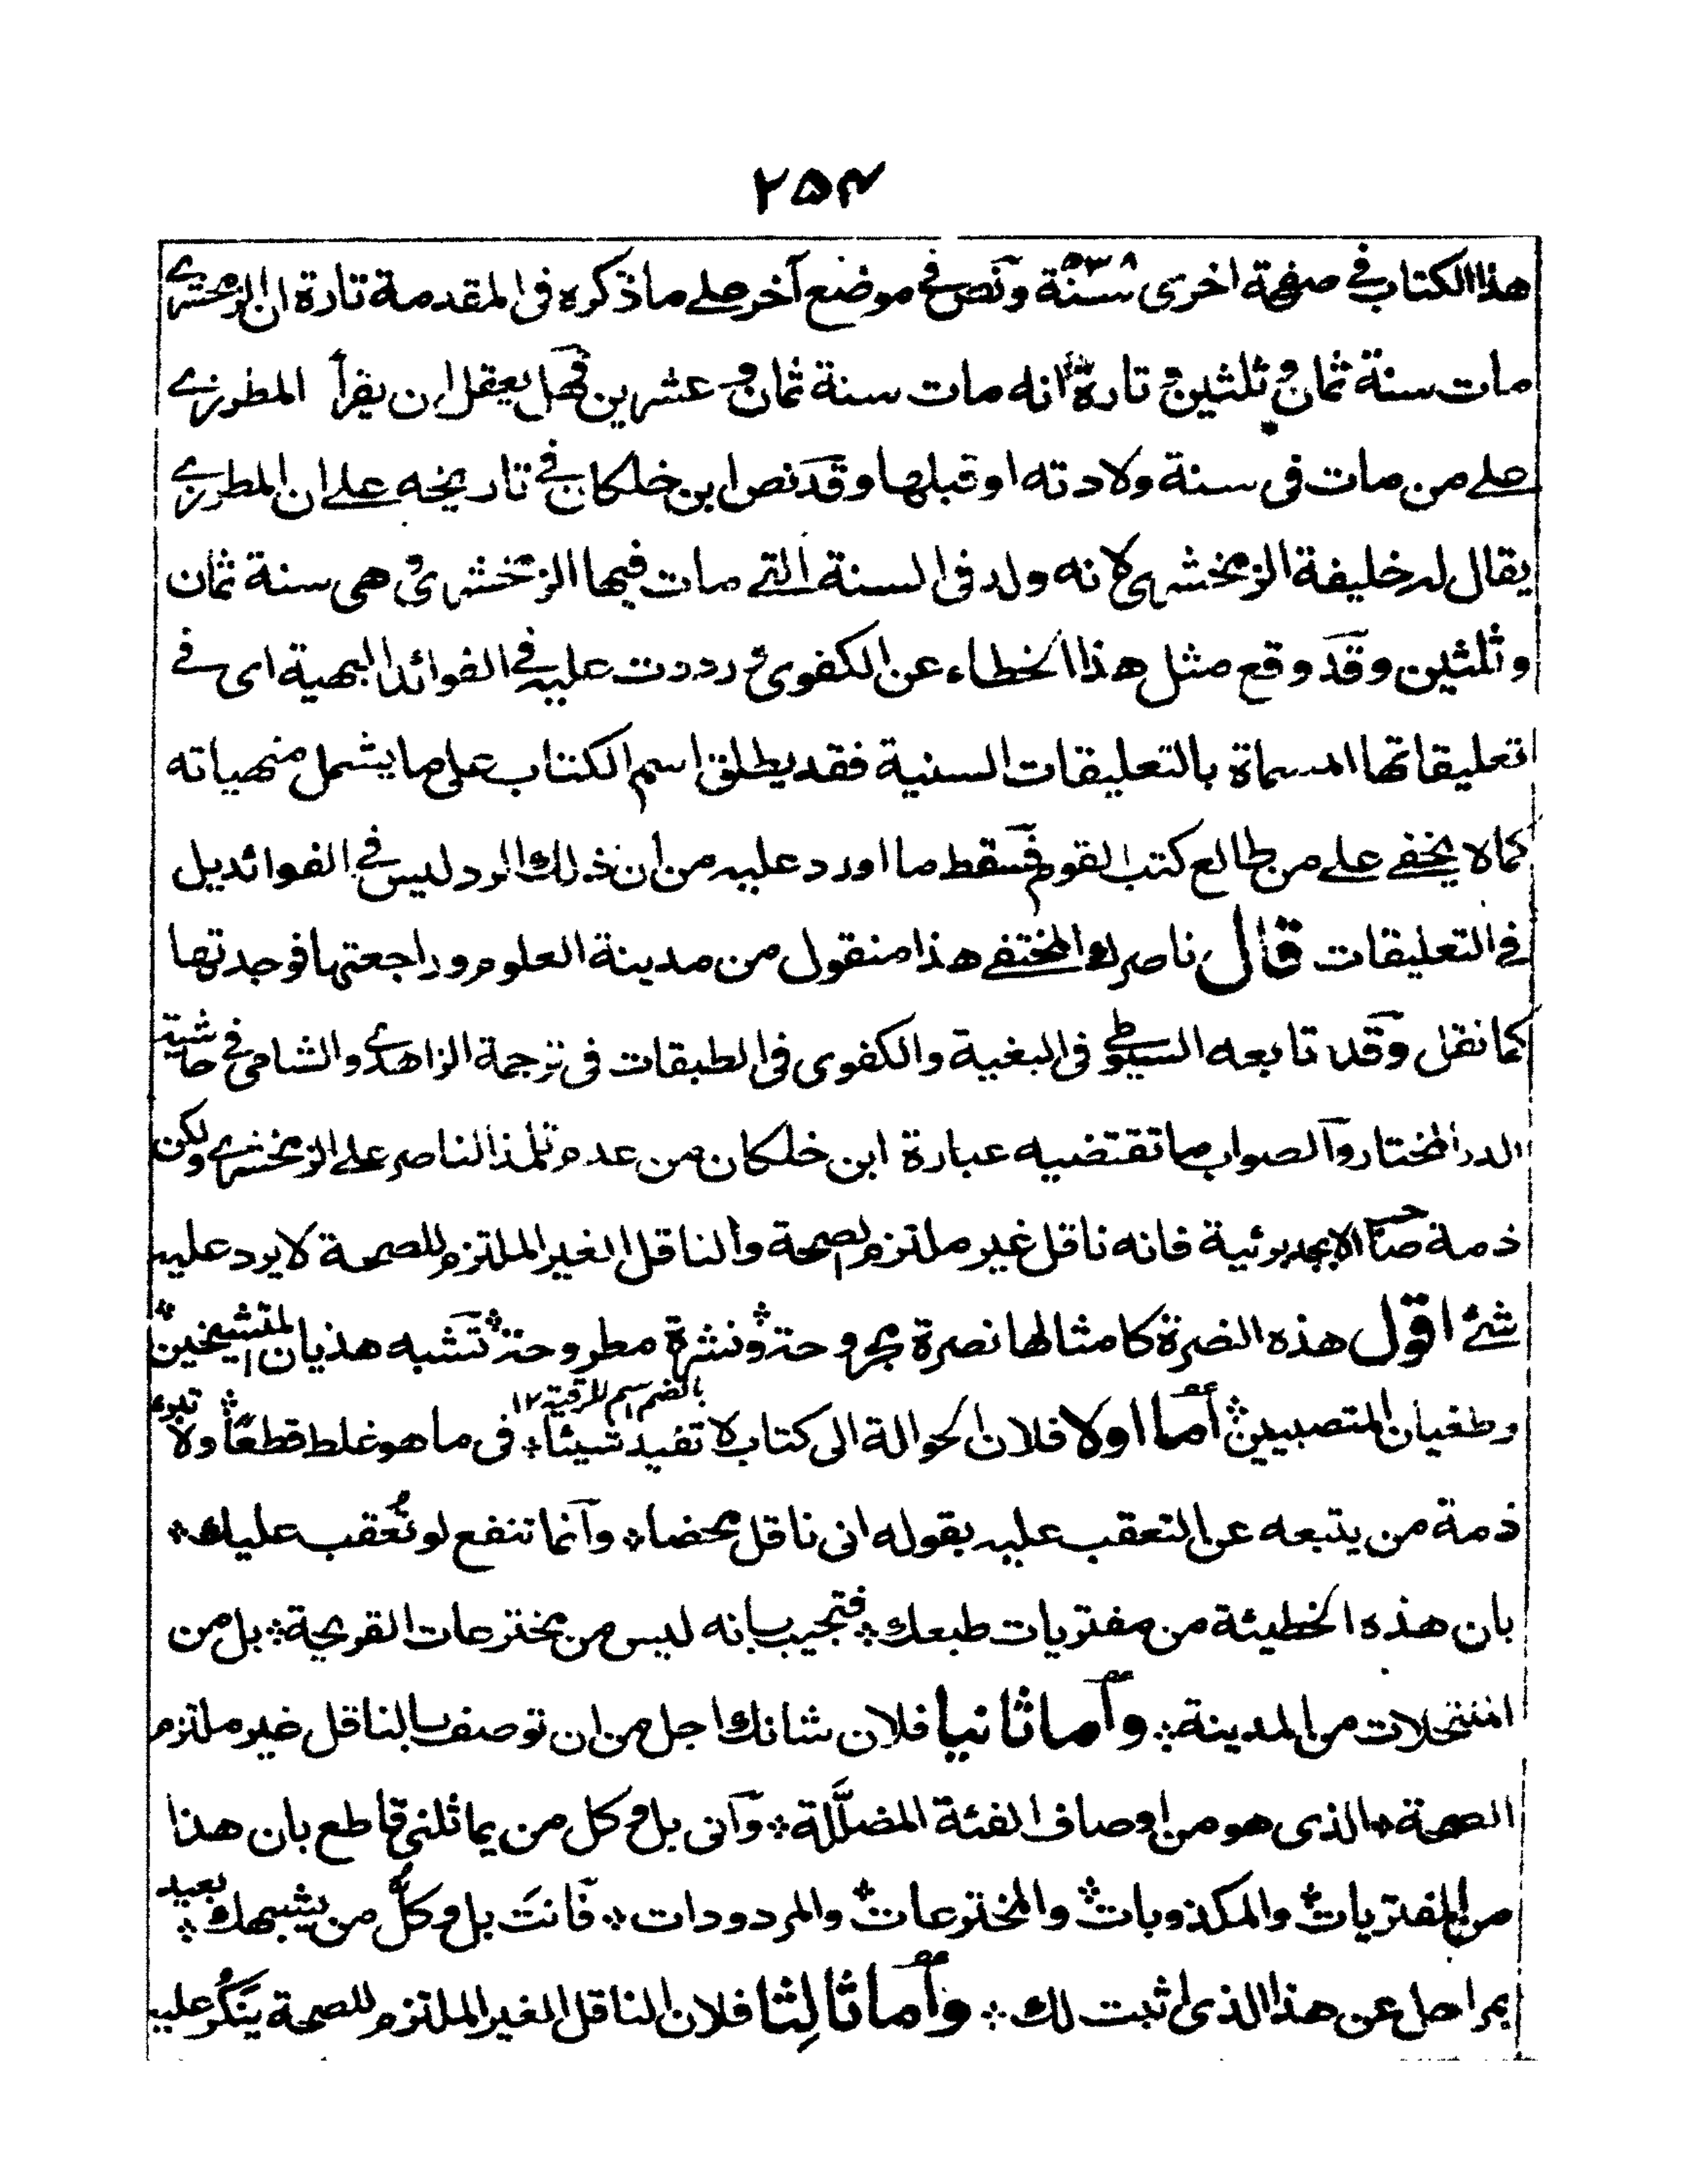 ٢٥٤
هذا الكتاب في صفحة اخرى سنة ٥٣٨ ونص في موضع آخر على ما ذكره فى المقدمة تارة ان الزمخشرے
مات سنة ثمان وثلثين وتارة انه مات سنة ثمان وعشرين فهل يعقل ان يقرأ المطرزے
على من مات فى سنة ولادته او قبلها وقد نص ابن خلكان في تاريخه على ان المطرزے
يقال له خليفة الزمخشرى لانه ولد فى السنة التے مات فيها الزمخشرى وهى سنة ثمان
وثلثين وقد وقع مثل هذا الخطاء عن الكفوى ورددت عليه في الفوائد البهية اى في
تعليقاتها المسماة بالتعليقات السنية فقد يطلق اسم الكتاب على ما يشمل منهياته
كما لا يخفے على من طالع كتب القوم فسقط ما اورد عليه من ان ذلك الرد ليس في الفوائد بل
في التعليقات قال ناصرك المختفے هذا منقول من مدينة العلوم وراجعتها فوجدتها
كما نقل وقد تابعه السيوطے فى البغية والكفوى فى الطبقات فى ترجمة الزاهدے والشامى في حاشية
الدر المختار والصواب ما تقتضيه عبارة ابن خلكان من عدم تلمذ الناصر على الزمخشرے ولكن
ذمة صاحب الابجد برئية فانه ناقل غير ملتزم لصحة والناقل الغير الملتزم للصحة لا يرد عليه
شئ اقول هذه النصرة كامثالها نصرة مجروحة ونشرة مطروحة تشبه هذيان المتشيخين
بالضم اسم للرقية ١٢
وطغيان المتصبيين اما اولا فلان الحوالة الى كتاب لا تفيد شيئا فى ما هو غلط قطعًا ولا تبرء
ذمة من يتبعه عن التعقب عليه بقوله انى ناقل محضا وانما تنفع لو تُعقب عليك
بان هذه الخطيئة من مفتريات طبعك فتجيب بانه ليس من مخترعات القريحة بل من
المنتحلات من المدينة واما ثانيا فلان شانك اجل من ان توصف بالناقل غير ملتزم
الصحة الذى هو من اوصاف الفئة المضلَّلة وانى بل وكل من يماثلنى قاطع بان هذا
من المفتريات والمكذوبات والمخترعات والمردودات فانتَ بل وكلُّ من يشبهك بعيد
بمراحل عن هذا الذى اثبت لك واما ثالِثا فلان الناقل الغير الملتزم للصحة يَنكُر عليه